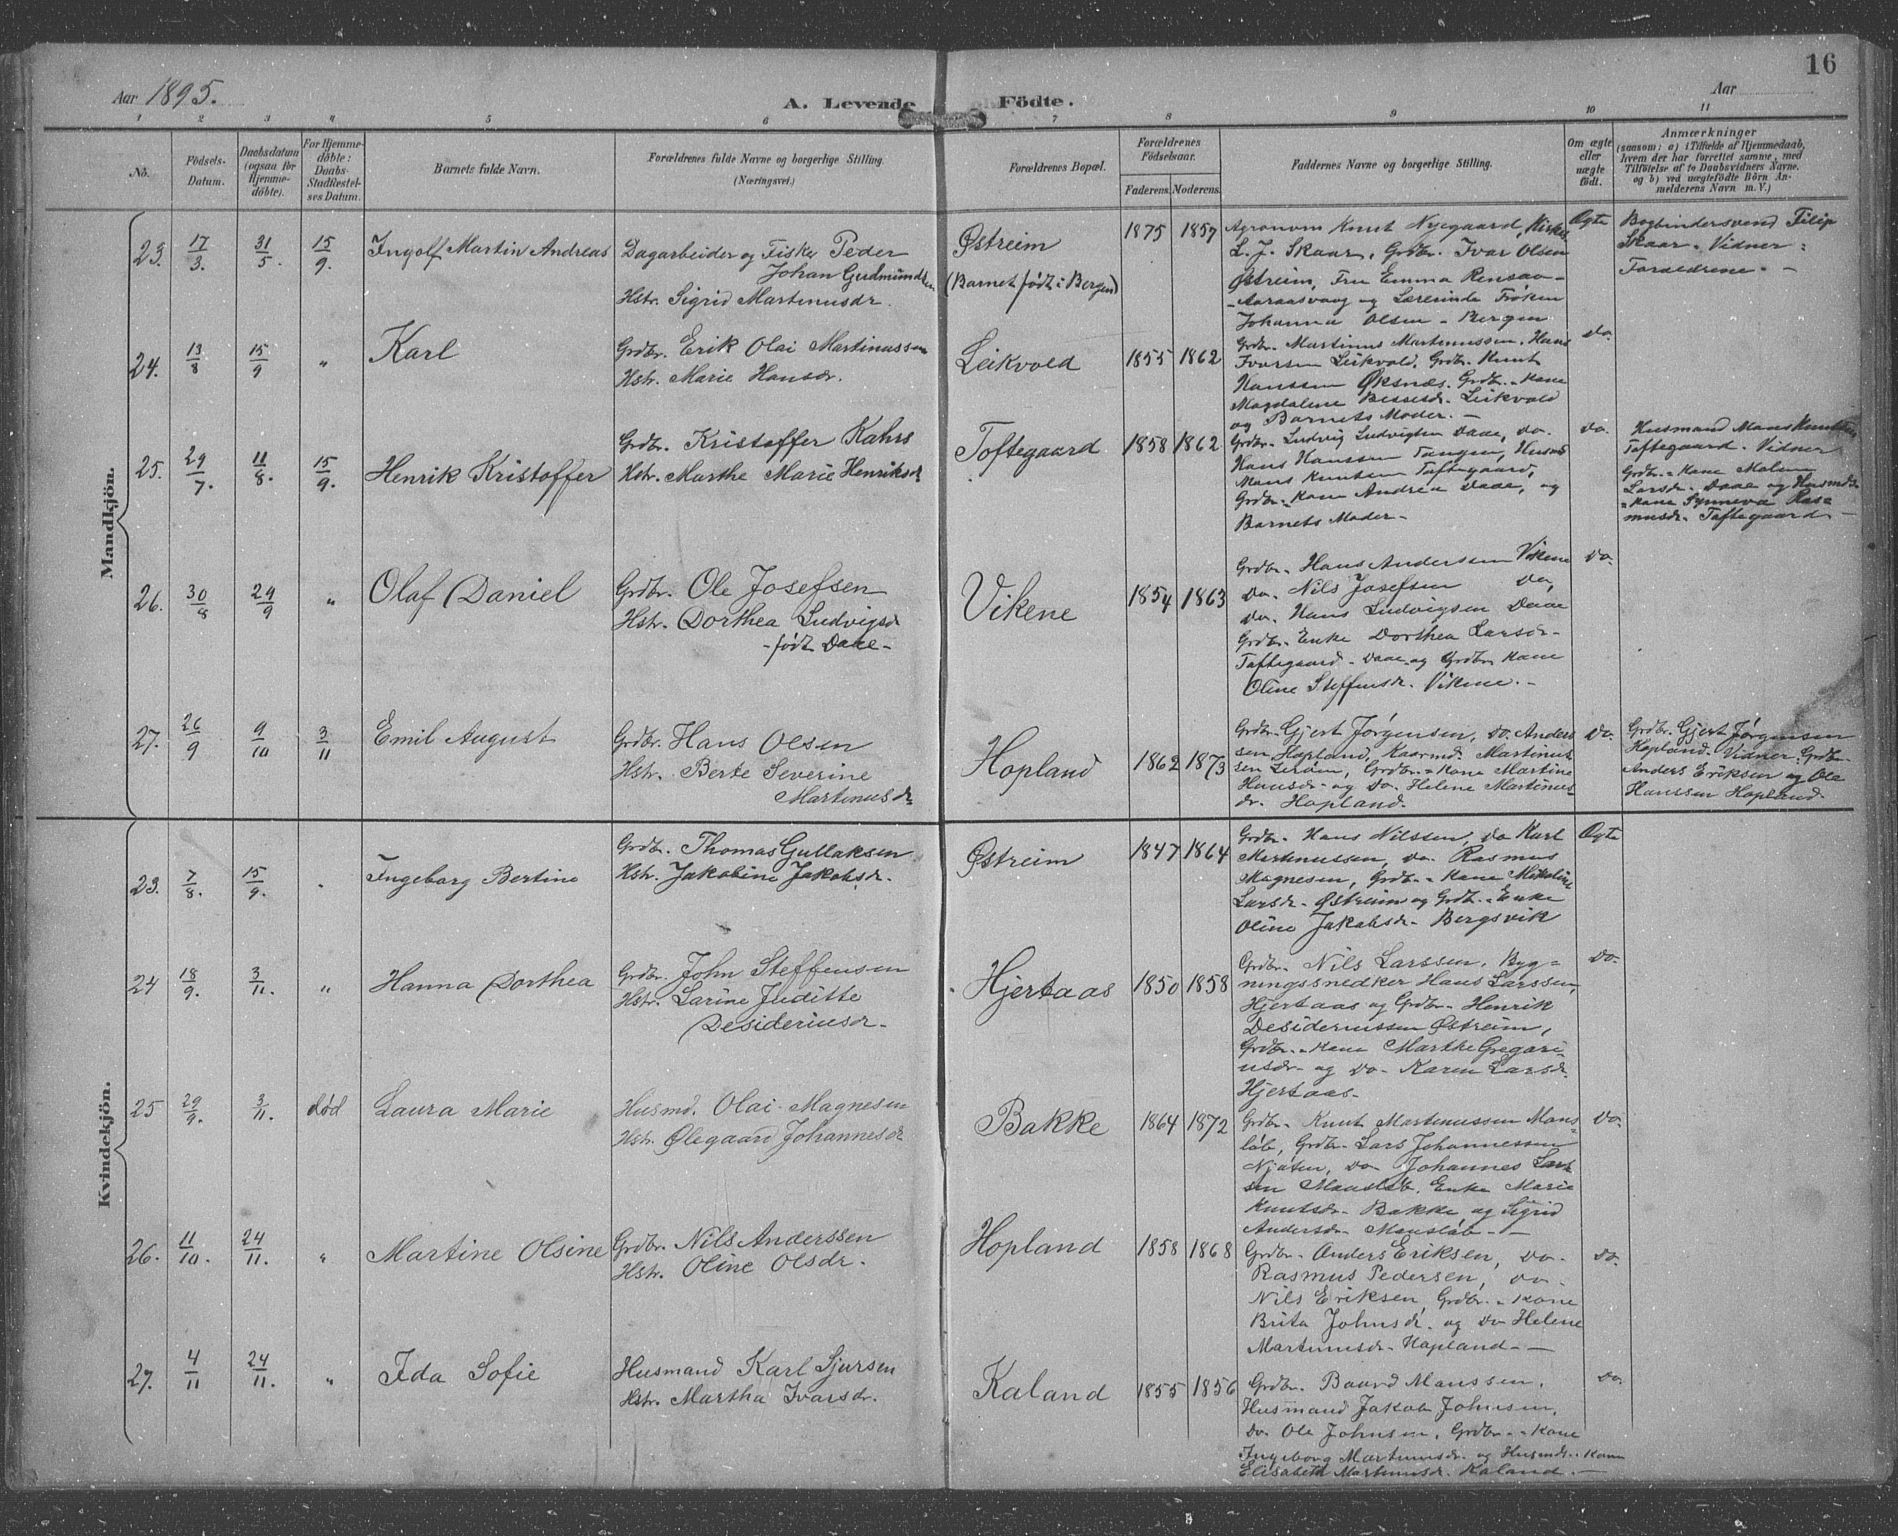 16
Aar 1895.
A. Levende Födte.
Aar
1 2 3 4 5 6 7 8 9 10 11
No.
Födsels-Datum.
Daabsdatum (ogsaa for Hjemmedöbte).
For Hjemmedöbte: Daabs-Stadfæstelses Datum.
Barnets fulde Navn.
Forældrenes fulde Navne og borgerlige Stilling.
(Næringsvei.)
Forældrenes Bopæl.
Forældrenes Födselsaar.
Faderens. Moderens.
Faddernes Navne og borgerlige Stilling.
Om ægte eller uægte födt.
Anmærkninger
(saasom: a) i Tilfælde af Hjemmedaab, hvem der har forrettet samme, med Tilföielse af to Daabsvidners Navne, og b) ved uægtefödte Börn Anmelderens Navn m. V.)
Mandkjön.
23. 17/3. 31/5. 15/9. Ingolf Martin Andreas
Dagarbeider og Fisker Peder
Johan Gudmundsen
Hstr. Sigrid Martinusdr.
Østreim
(Barnet født i Bergen)
1875 1857
Agronom Knut Nygaard, Kirkes.
L. J. Skaar, Grdbr. Ivar Olsen
Østreim, Fru Emma Rensaa-
Aaraasvaag og Lærerinde Frøken
Johanna Olsen - Bergen
Ægte
Bogbindersvend Filip
Skaar. Vidner:
Forældrene. -
24. 13/8 15/9 " Karl
Grdbr. Erik Olai Martinussen
Hstr. Marie Hansdr.
Leikvold
1855 1862
Grdbr. Martinus Martinussen, Hans
Ivarsen Leikvold, Grdbr. Knut
Hanssen Øksnæs. Grdbr.-Kone
Magdalene Bessesdr. Leikvold
og Barnets Moder. -
do.
25. 29/7. 11/8. 15/9. Henrik Kristoffer
Grdbr. Kristoffer Kahrs
Hstr. Marthe Marie Henriksdr
Toftegaard
1858 1862
Grdbr. Ludvig Ludvigsen Daae, do.
Hans Hanssen Tangen, Husmd
Mons Knutsen Toftegaard,
Grdbr.-Kone Andrea Daae, og
Barnets Moder -
do.
Husmand Mons Knutsen
Toftegaard. Vidner
Grdbr.-Kone Malene
Larsdr. Daae og Husmds
-Kone Synneva Rasmusdr. Toftegaard -
26. 30/8 29/9 " Olaf Daniel
Grdbr. Ole Josefsen
Hstr. Dorthea Ludvigsdr
- født Daae -
Vikene
1854 1863
Grdbr. Hans Anderssen Vikene
do. Nils Josefsen do,
do. Hans Ludvigsen Daae
Grdbr. Enke Dorthea Larsdr.
Toftegaard - Daae og Grdbr. Kone
Oline Steffensdr. Vikene. -
do.
27. 26/9 9/10 3/11 Emil August
Grdbr. Hans Olsen
Hstr. Berte Severine
Martinusdr
Hopland
1862 1873
Grdbr. Gjert Jørgensen, do. Anders
sen Hopland, Kaarmd. Martinussen Lerøim, Grdbr.-Kone Martine
Hansdr. og do. Helene Martinusdr. Hopland.
do.
Grdbr. Gjert Jørgensen
Hopland. Vidner: Grdbr.
Anders Eriksen og Ole
Hanssen Hopland.
Kvindekjön.
23. 7/8. 15/9. Ingeborg Bertine
Grdbr. Thomas Gullaksen
Hstr. Jakobine Jakobsdr.
Østreim
1847 1864
Grdbr. Hans Nilssen, do Karl
Martinussen, do. Rasmus
Magnesen, Grdbr.-Kone Mikaline
Larsdr. Østreim og Grdbr.-Enke
Oline Jakobsdr. Bergsvik
Ægte
24 18/9. 3/11. " Hanna Dorthea
Grdbr. John Steffensen
Hstr. Larine Juditte
Desideriusdr.
Hjertaas
1850 1858
Grdbr. Nils Larssen, Bygningssnedker Hans Larssen,
Hjertaas og Grdbr. Henrik
Desideriussen Østreim,
Grdbr.-Kone Marthe Gregoriusdr. og do - Karen Larsdr.
Hjertaas.
do.
25 29/9. 3/11. død Laura Marie
Husmd. Olai Magnesen
Hstr. Olegaard Johannesdr
Bakke
1864 1872
Grdbr. Knut Martinussen Mons-
løb, Grdbr. Lars Johannessen
Njøten, do Johannes Lars-
sen Monsløb, Enke Marie
Knutsdr. Bakke og Sigrid
Andersdr. Monsløb. -
do.
26. 11/10. 24/11. " Martine Olsine
Grdbr. Nils Anderssen
Hstr. Oline Olsdr.
Hopland
1858 1868
Grdbr. Anders Eriksen, do.
Rasmus Pedersen, do.
Nils Eriksen, Grdbr.-Kone
Brita Johnsdr. og do Helene
Martinusdr. Hopland -
do.
27. 4/11 24/11. " Ida Sofie
Husmand Karl Sjursen
Hstr. Martha Ivarsdr.
Kaland
1855 1856
Grdbr. Baard Monssen,
Husmand Jakob Johnsen,
do. Ole Johnsen, Grdbr.-Kone
Ingeborg Martinusdr. og Husmds.-Kone
Elisabeth Martinusdr. Kaland. -
do.